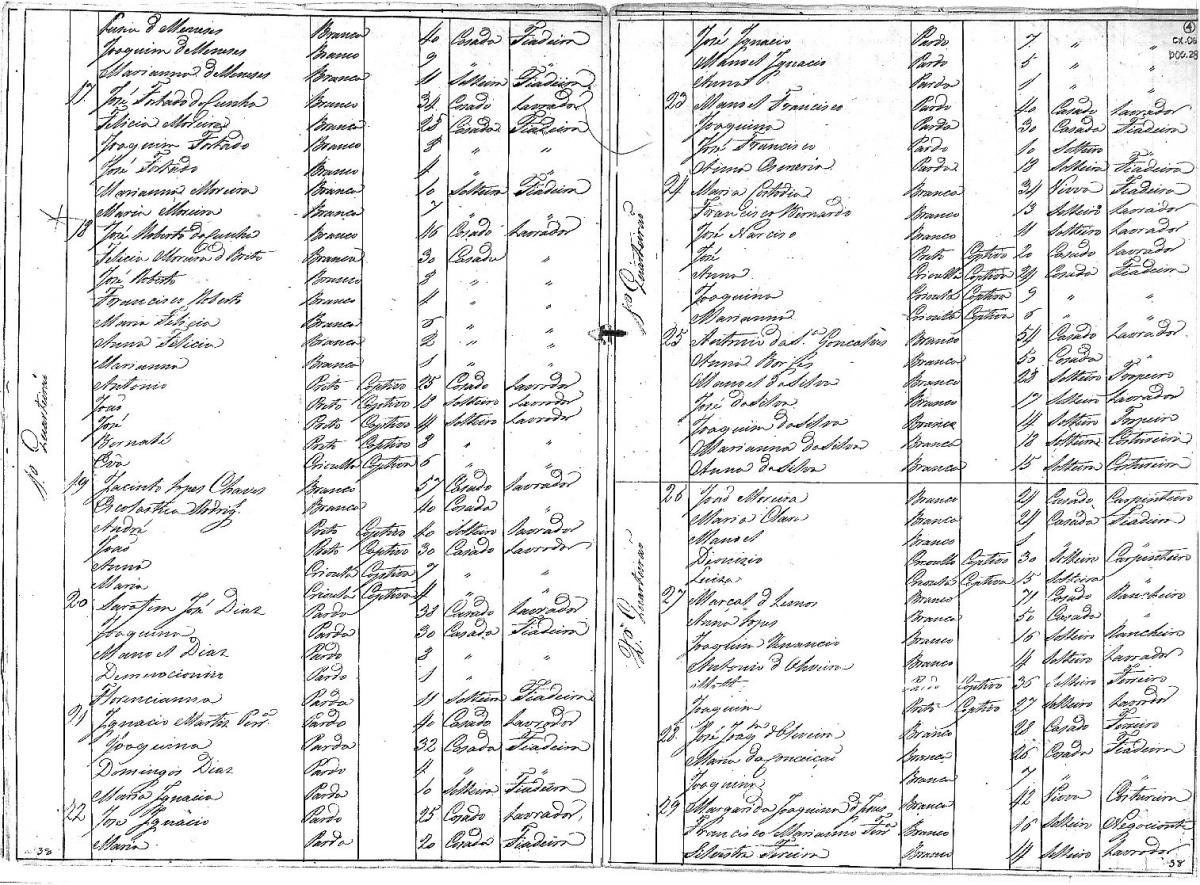 Branca 40 Casada Fiadeira
Joaquim de Meneses Branco 9 "
Marianna de Meneses Branca 11 Solteira Fiadeira
17 José Fortado da Cunha Branco 34 Casado Lavrador
Felicia Moreira Branca 25 Casada Fiadeira
Joaquim Fortado Branco 5 " "
José Fortado Branco 4 " "
Marianna Moreira Branca 10 Solteira Fiadeira
Maria Moreira Branca 7 " "
18 José Roberto da Cunha Branco 46 Casado Lavrador
Felicia Moreira d Brito Branca 30 Casada "
José Roberto Branco 8 " "
Francisco Roberto Branco 4 " "
Maria Felicia Branca 6 " "
Anna Felicia Branca 2 " "
Marianna Branca 1 " "
Antonio Preto Coptivo 25 Casado Lavrador
João Preto Coptivo 18 Solteiro Lavrador
José Preto Coptivo Solteiro Lavrador
Preto Coptivo " "
Eva Crioulla Coptiva 6 " "
19 Jacinto Lopes Chaves Branco 57 Casado Lavrador
Escolastica Rodrig. Branca 40 Casada
André Preto Coptivo 40 Solteiro Lavrador
João Preto Coptivo 30 Casado Lavrador
Anna Crioula Coptiva 9 " "
Maria Crioula Coptiva 4 " "
20 José Diaz Pardo 38 Casado Lavrador
Joaquina Parda 30 Casada Fiadeira
Manoel Diaz Pardo 8 " "
Pardo 1 " "
Florencianna Parda 11 Solteira Fiadeira
21 Ignacio Martiz Pardo 40 Casado Lavrador
Joaquina Parda 32 Casada Fiadeira
Domingos Diaz Pardo 4 " "
Maria Ignacia Parda 10 Solteira Fiadeira
22 José Ignacio Pardo 25 Casado Lavrador
Maria Parda 20 Casada Fiadeira
1º Quarteirão
38
4
CX.06
DOC.28
José Ignacio Pardo 7 " "
Manoel Ignacio Pardo 5 " "
Anna Parda 1 " "
23 Manoel Francisco Pardo 40 Casado Lavrador
Joaquina Parda 30 Casada Fiadeira
José Francisco Pardo 10 Solteiro
Parda 18 Solteira Fiadeira
24 Maria Custodia Branca 34 Viuva Fiadeira
Francisco Bernardo Branco 13 Solteiro Lavrador
José Narciso Branco 11 Solteiro Lavrador
José Preto Coptivo 20 Casado Lavrador
Anna Crioulla Coptiva Casada Fiadeira
Joaquina Crioula Coptiva 9 " "
Marianna Crioulla Coptiva 6 " "
25 Antonio da Sª Goncalves Branco 54 Casado Lavrador
Anna Borges Branca 50 Casada
Manoel da Silva Branco 28 Solteiro Tropeiro
José da Silva Branco 17 Solteiro Lavrador
Joaquim da Silva Branco 14 Solteiro Tropeiro
Marianna da Silva Branca 18 Solteira Costureira
Anna da Silva Branca 15 Solteira Costureira
1º Quarteirão
26 João Moreira Branco 24 Casado Carpinteiro
Maria Clara Branca 24 Casada Fiadeira
Manoel Branco 1 "
Dionizio Crioullo Coptivo 30 Solteiro Carpinteiro
Luiza Crioula Coptiva 15 Solteira "
27 Marcal d Lemos Branco 71 Casado Rancheiro
Anna Lopes Branca 50 Casada
Joaquim Venancio Branco 16 Solteiro Rancheiro
Antonio d Oliveira Branco 4 Solteiro Lavrador
Coptivo 35 Solteiro Ferreiro
Joaquim Preto Coptivo 27 Solteiro Lavrador
28 José Joaqm d Oliveira Branco 28 Casado Ferreiro
Maria da Conceiçaõ Branca 26 Casada Fiadeira
Joaquina Branca 7 " "
29 Margarida Joaquina d Jesus Branca 42 Viuva Costureira
Francisco Marianno Branco 16 Solteiro Negociante
Silvestre Branco 14 Solteiro Lavrador
2º Quarteirão
38